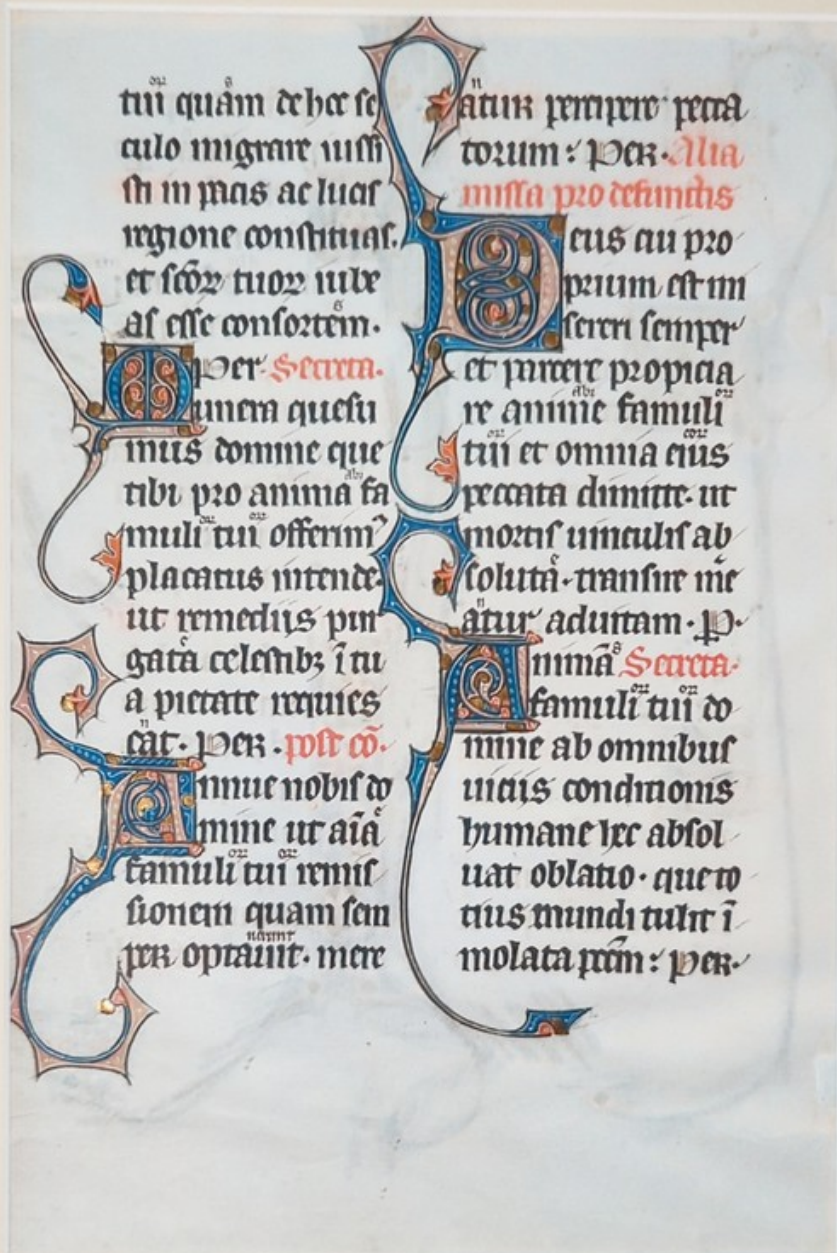 tui quam de hoc se
culo migrare iussi
sti in pacis ac lucis
regione constituas.
et scoꝝ tuoꝝ iube
as esse consortem.
Per. Secreta.
Munera quesu
mus domine que
tibi pro anima fa
muli tui offerim⁹
placatus intende.
ut remediis pur
gata celestibꝫ ī tu
a pietate requies
cat. Per. post cō.
Annue nobis do
mine ut aīa
famuli tui remis
sionem quam sem
per optauit. mere
atur percipere pecca
torum : Per. Alia
missa pro defunctis
Deus cui pro
prium est mi
sereri semper
et parcere propicia
re anime famuli
tui et omnia eius
peccata dimitte. ut
mortis uinculis ab
soluta. transire me
atur ad uitam. P.
Anima Secreta.
famuli tui do
mine ab omnibus
uiciis conditionis
humane hec absol
uat oblatio. que to
tius mundi tulit ī
molata pctm : Per.